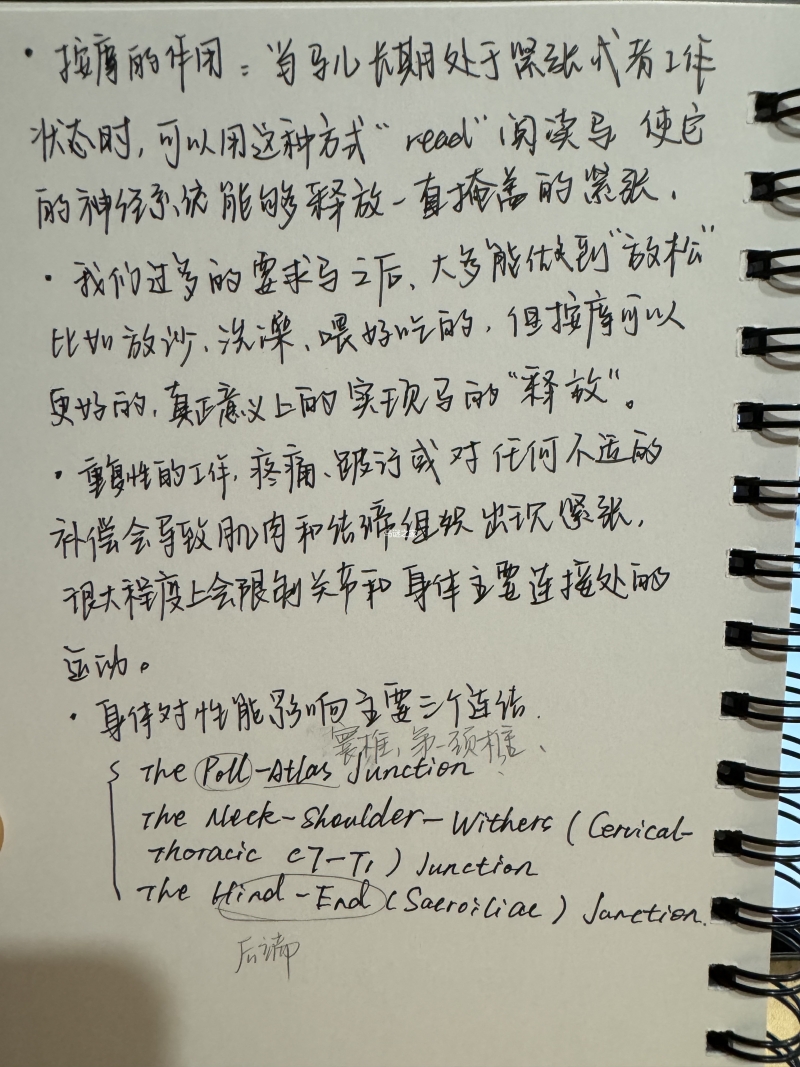 · 按摩的作用：当马儿长期处于紧张或者工作
状态时，可以用这种方式“read”阅读马 使它
的神经系统能够释放一直掩盖的紧张．
· 我们过多的要求马之后、大多能做到“放松”
比如放沙、洗澡、喂好吃的，但按摩可以
更好的，真正意义上的实现马的“释放”。
· 重复性的工作，疼痛、跛行或对任何不适的
补偿会导致肌肉和结缔组织出现紧张，
很大程度上会限制关节和身体主要连接处的
运动。
· 身体对性能影响主要三个连结．
寰椎、第一颈椎、
The Poll-Atlas Junction
The Neck-Shoulder-Withers (Cervical-
Thoracic C7-T1) Junction
The Hind-End (Sacroiliac) Junction.
后端